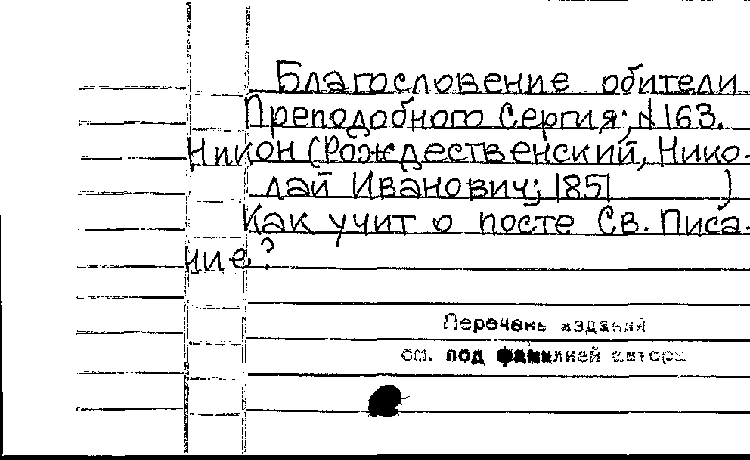 Благословение обители
Преподобного Сергия; №163.
Никон (Рождественский, Нико-
лай Иванович; 1851 )
Как учит о посте Св. Писа-
ние?
Перечень изданий
см. под фамилией автора